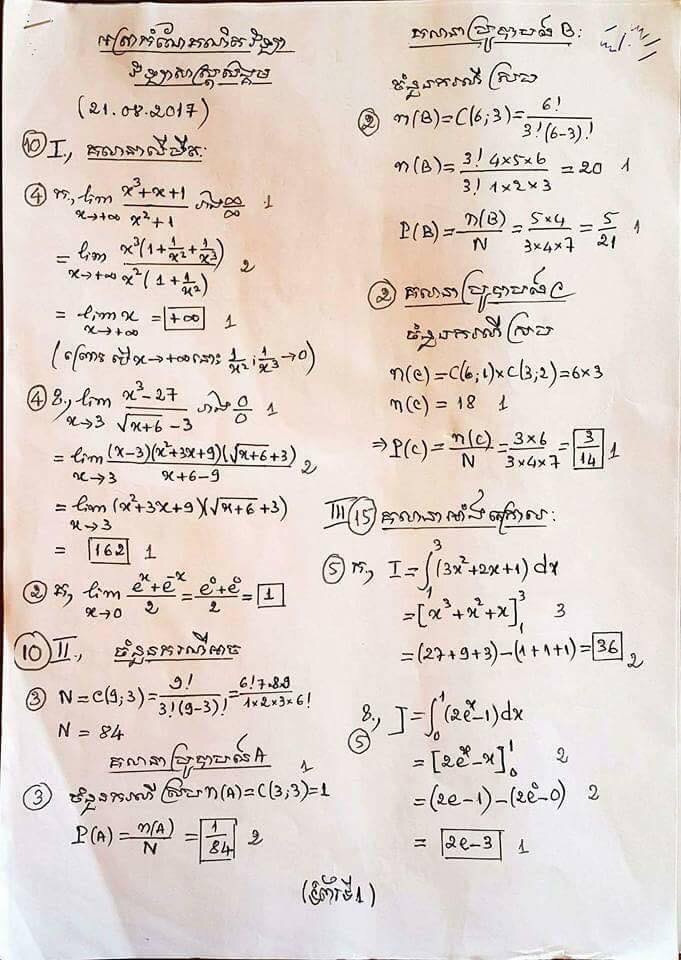 អត្រាកំណែគណិតវិទ្យា
វិទ្យាសាស្ត្រសង្គម
(21.08.2017)
10 I., គណនាលីមីត:
4 ក, lim x→+∞ (x³+x+1)/(x²+1) រាង ∞/∞ 1
= lim x→+∞ x³(1+1/x²+1/x³)/x²(1+1/x²) 2
= lim x→+∞ x = +∞ 1
(ព្រោះ បើ x→+∞ នោះ 1/x² ; 1/x³ →0)
4 ខ., lim x→3 (x³-27)/(√(x+6) -3) រាង 0/0 1
= lim x→3 (x-3)(x²+3x+9)(√(x+6)+3)/(x+6-9) 2
= lim x→3 (x²+3x+9)(√(x+6)+3)
= 162 1
2 គ, lim x→0 (eˣ+e⁻ˣ)/2 = (e⁰+e⁰)/2 = 1
10 II., ចំនួនករណីអាច
3 N=C(9;3)=9!/3!(9-3)!=6!7.8.9/1×2×3×6!
N = 84
គណនាប្រូបាបនៃ A 1
3 ចំនួនករណីស្រប n(A)=C(3;3)=1
P(A)=n(A)/N = 1/84 2
គណនាប្រូបាបនៃ B:
ចំនួនករណីស្រប
2 n(B)=C(6;3)=6!/3!(6-3)!
n(B)=3! 4×5×6/3! 1×2×3 =20 1
P(B)=n(B)/N=5×4/3×4×7=5/21 1
2 គណនាប្រូបាបនៃ C
ចំនួនករណីស្រប
n(C)=C(6;1)×C(3;2)=6×3
n(C) = 18 1
⇒P(C)=n(C)/N=3×6/3×4×7=3/14 1
III 15 គណនាអាំងតេក្រាល:
5 ក, I=∫₁³(3x²+2x+1)dx
=[x³+x²+x]₁³ 3
=(27+9+3)-(1+1+1)=36 2
5 ខ., J=∫₀¹(2eˣ-1)dx
=[2eˣ-x]₀¹ 2
=(2e-1)-(2e⁰-0) 2
= 2e-3 1
(ទំព័រទី1)